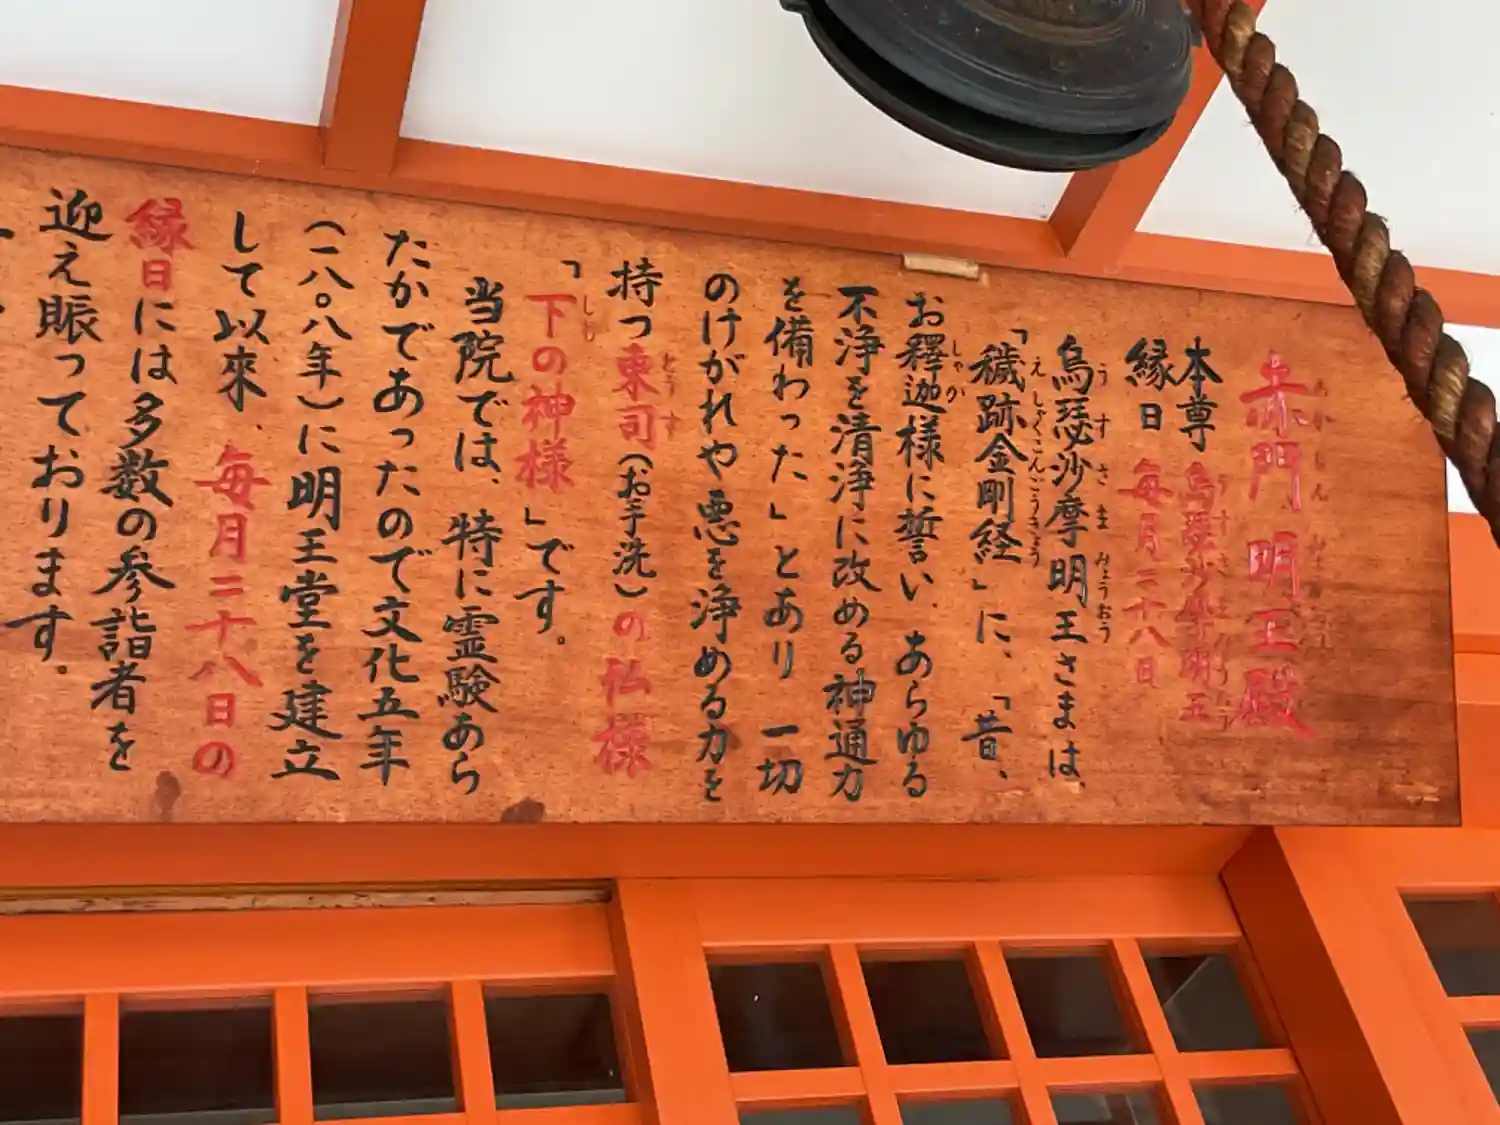 赤門 明王殿
本尊 烏瑟沙摩明王
縁日 毎月二十八日
烏瑟沙摩明王さまは、
「穢跡金剛経」に、「昔、
お釋迦様に誓い、あらゆる
不浄を清浄に改める神通力
を備わった」とあり 一切
のけがれや悪を浄める力を
持つ東司(お手洗)の仏様
「下の神様」です。
当院では、特に霊験あら
たかであったので文化五年
(一八〇八年)に明王堂を建立
して以來、毎月二十八日の
縁日には多数の参詣者を
迎え賑っております。